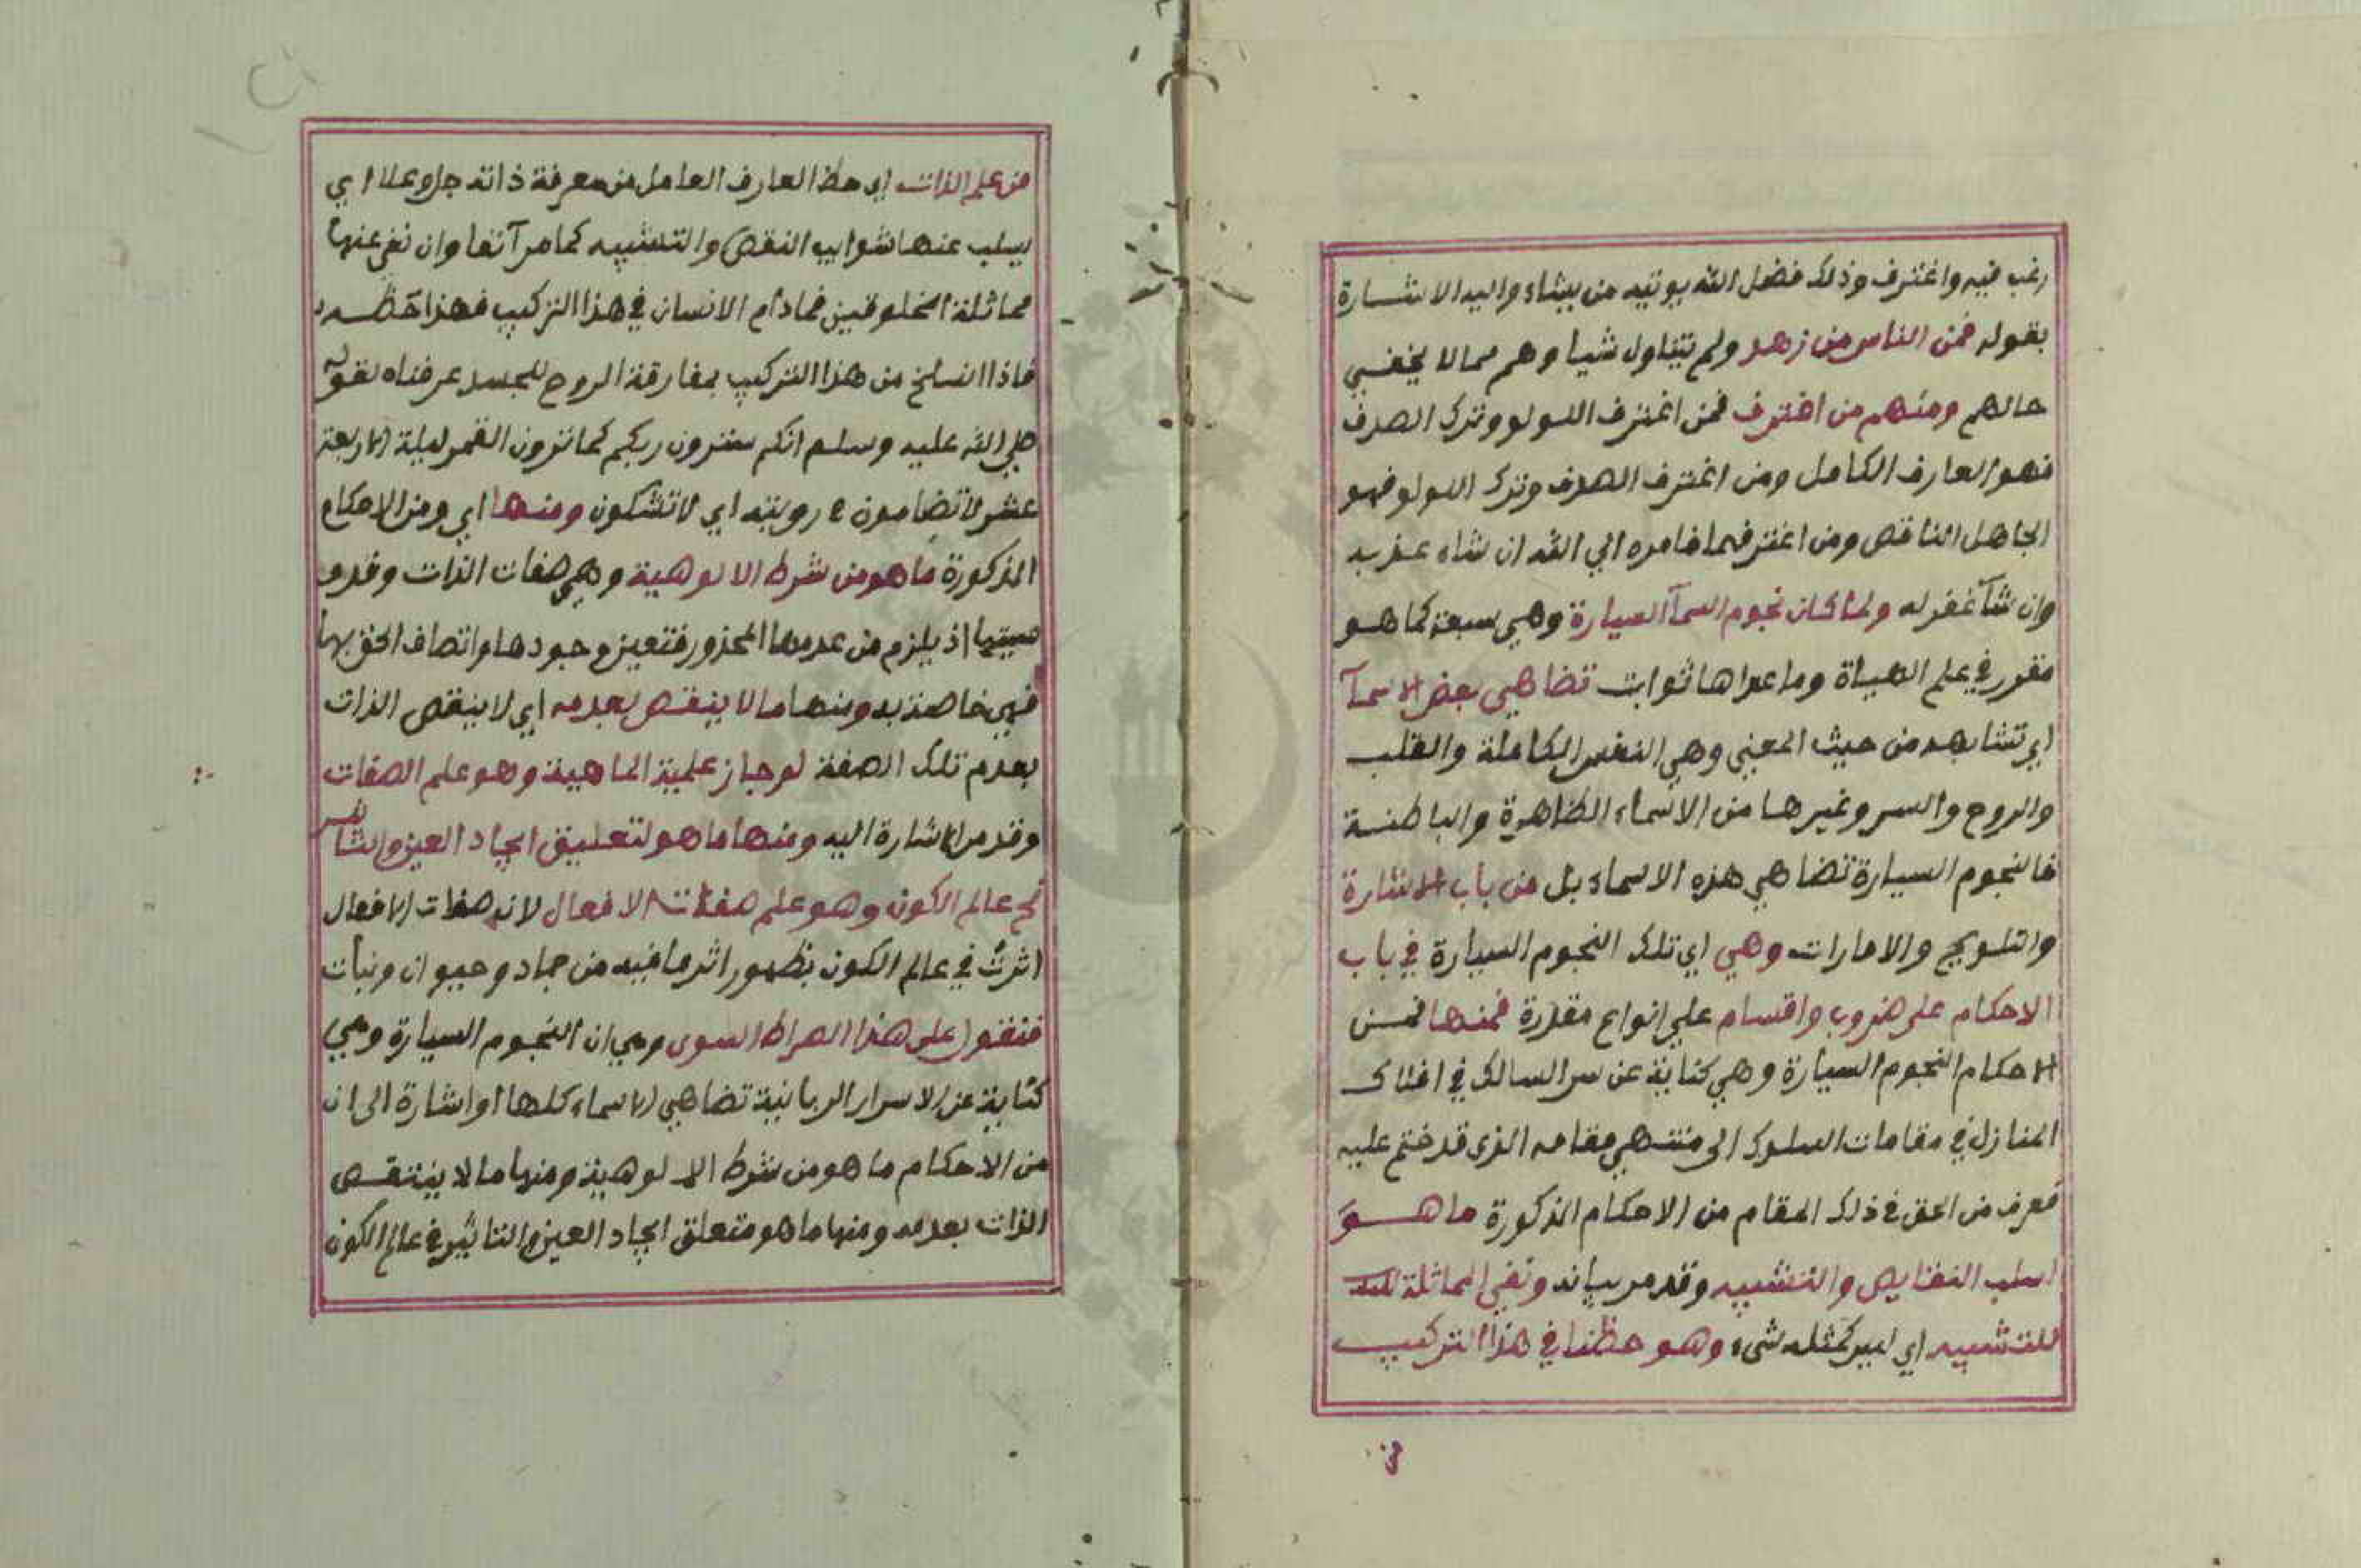 رغب فيه واغترف وذلك فضل الله يوتيه من يشاء واليه الاشارة
بقوله فمن الناس من زهد ولم يتناول شيا وهم ممالا يخفي
حالهم ومنهم من اغترف فمن اغترف اللولو وترك الصدف
فهو العارف الكامل ومن اغترف الصدف وترك اللولو فهو
الجاهل الناقص ومن اغترفهما فامره الي الله ان شاء عذبه
وان شآ غفر له ولما كان نجوم السمآ السيارة وهي سبعة كما هو
مقرر في علم الهياة وما عداها ثوابت تضاهي بعض الاسمآ
اي تشابهه من حيث المعني وهي النفس الكاملة والقلب
والروح والسر وغيرها من الاسماء الظاهرة والباطنة
فالنجوم السيارة تضاهي هذه الاسماء بل من باب الاشارة
والتلويح والامارات وهي اي تلك النجوم السيارة في باب
الاحكام على ضروب واقسام علي انواع مقدرة فمنها فمن
الاحكام النجوم السيارة وهي كناية عن سر السالك في افلاك
المنازل في مقامات السلوك الى منتهي مقامه الذى قد ختم عليه
فعرف من الحق في ذلك المقام من الاحكام المذكورة ما هو
لسلب النقايص والتشبيه وقد مر بيانه ونفي المماثلة
للتشبيه اي ليس كمثله شىء وهو حظنا في هذا التركيب
من
من علم الذات اي حظ العارف العامل من معرفة ذاته جل وعلا اي
يسلب عنها شوايب النقص والتشبيه كما مر آنفا وان نفي عنها
مماثلة المخلوقين فمادام الانسان في هذا التركيب فهذا حظه
فاذا انسلخ من هذا التركيب بمفارقة الروح للجسد عرفناه لقوله
صلي الله عليه وسلم انكم سترون ربكم كما ترون القمر ليلة الاربعة
عشر لا تضامون في رويته اي لا تشكون ومنها اي ومن الاحكام
المذكورة ما هو من شرط الالوهية وهي صفات الذات وقد مر
اذ يلزم من عدمها المحذور فتعين وجودها واتصاف الحق بها
فهي خاصة به ومنها مالا ينقص بعدمه اي لا ينقص الذات
بعدم تلك الصفة لو جاز علمية الماهية وهو علم الصفات
وقد مر الاشارة اليه ومنها ما هو لتعليق ايجاد العين والتاثير
في عالم الكون وهو علم صفات الافعال لانه صفات الافعال
اثرت في عالم الكون بظهور اثر ما فيه من جماد وحيوان ونبات
فتقفوا على هذا الصراط السوى وهي ان النجوم السيارة وهي
كناية عن الاسرار الربانية تضاهي الاسماء كلها او اشارة الى ان
من الاحكام ما هو من شرط الالوهية ومنها ما لا ينتقص
الذات بعدمه ومنها ما هو متعلق ايجاد العين والتاثير في عالم الكون